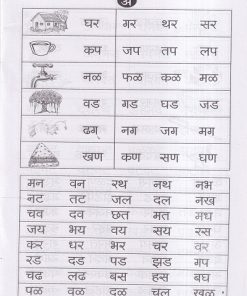 अ
घर गर थर सर
कप जप तप लप
नळ फळ कळ मळ
वड गड घड जड
ढग नग जग मग
खण कण सण घण
मन वन रथ नथ नभ
नट तट जल दल नख
चव दव छत मत मध
जय भय वय सय रस
कर धर भर चर वर
रड दड पड झड गप
चढ लढ बस हस बघ
पळ वळ दळ चल खळ